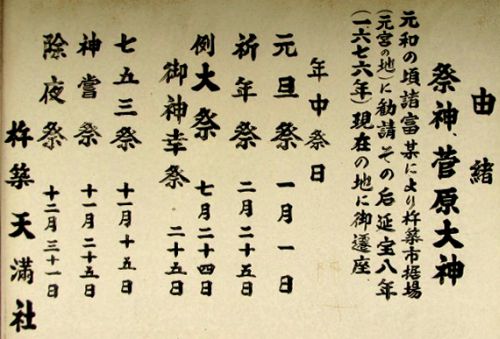 由緒
祭神、菅原大神
元和の頃諸富某により杵築市据場
(元宮の地)に勧請その后延宝八年
(一六七六年)現在の地に御遷座
年中祭日
元旦祭 一月一日
祈年祭 二月二十五日
例大祭 七月二十四日
御神幸祭 二十五日
七五三祭 十一月十五日
神嘗祭 十一月二十五日
除夜祭 十二月三十一日
杵築天満社